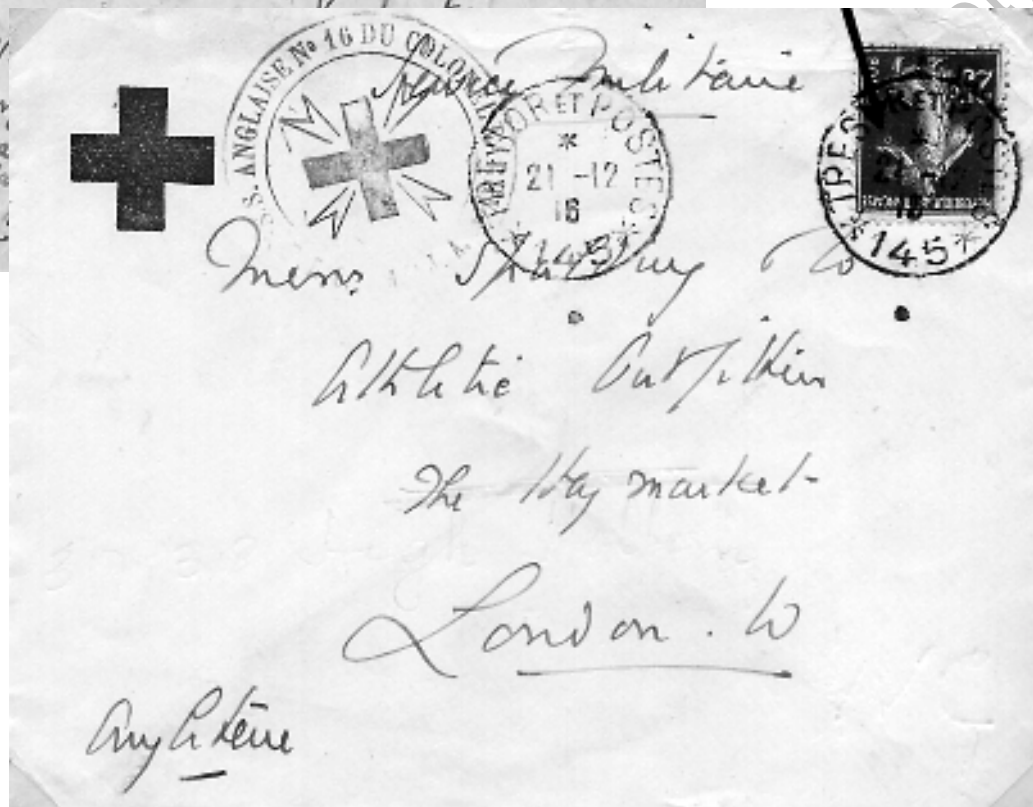 S.S. ANGLAISE No 16 DU
Service Militaire
TRESOR ET POSTES
*
21 -12
16
* 145 *
TRESOR ET POSTES
16
* 145 *
Messrs & Co
Athletic Outfitters
The Haymarket
London. W
Angleterre